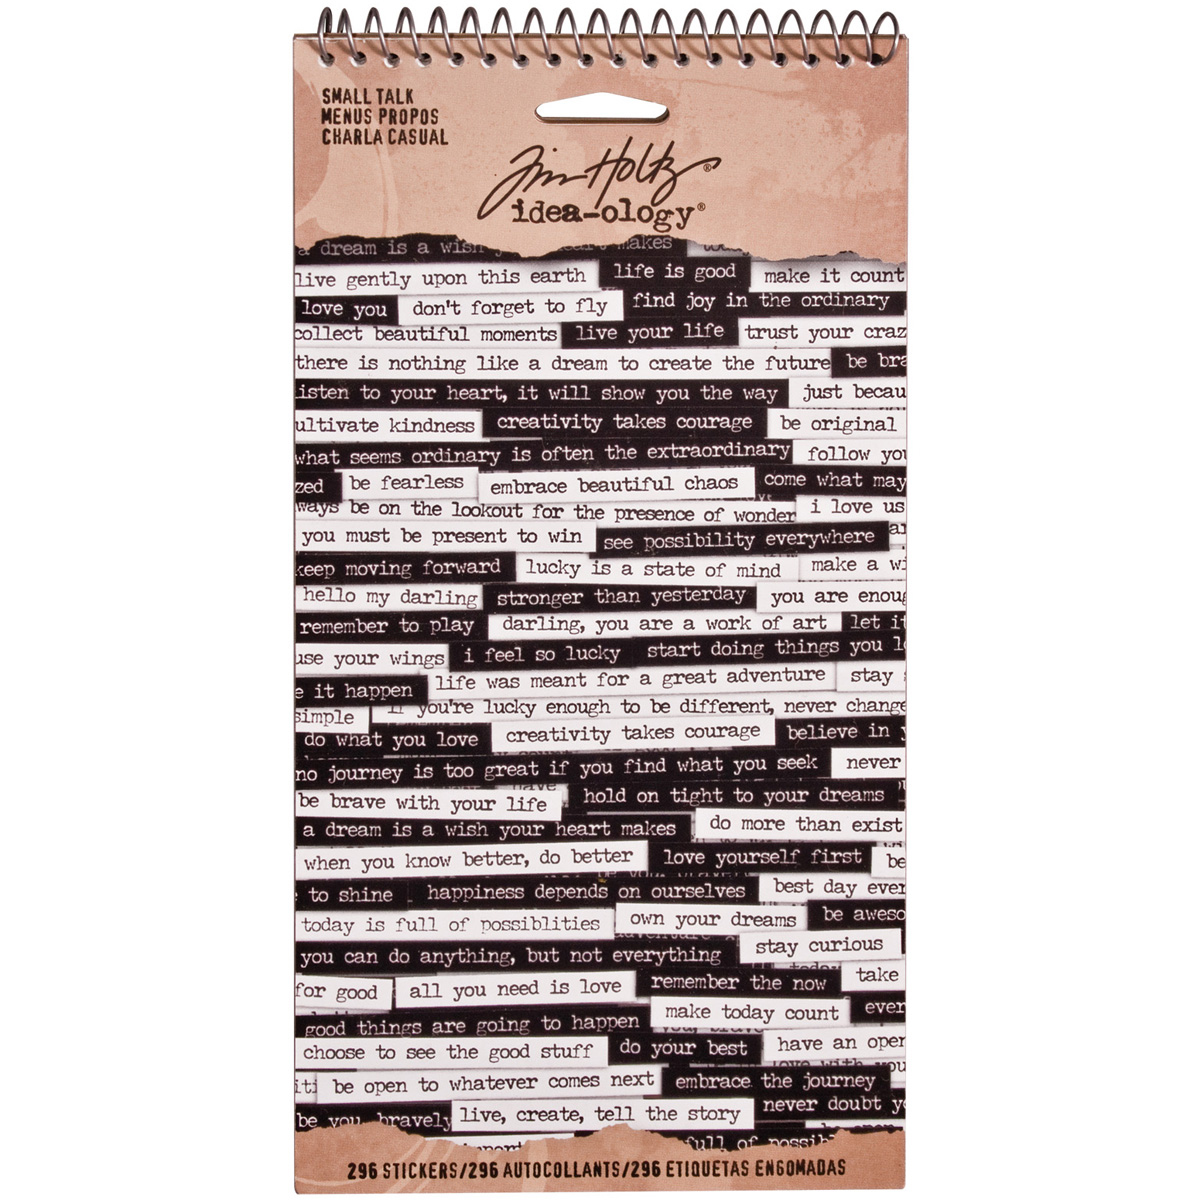 SMALL TALK
MENUS PROPOS
CHARLA CASUAL
Tim Holtz®
idea-ology®
a dream is a wish makes
live gently upon this earth life is good make it count
love you don't forget to fly find joy in the ordinary
collect beautiful moments live your life trust your craz
there is nothing like a dream to create the future be bra
isten to your heart, it will show you the way just becau
ultivate kindness creativity takes courage be original
what seems ordinary is often the extraordinary follow you
zed be fearless embrace beautiful chaos come what may
ways be on the lookout for the presence of wonder i love us
you must be present to win see possibility everywhere
keep moving forward lucky is a state of mind make a wi
hello my darling stronger than yesterday you are enoug
remember to play darling, you are a work of art let it
use your wings i feel so lucky start doing things you lo
e it happen life was meant for a great adventure stay
simple if you're lucky enough to be different, never change
do what you love creativity takes courage believe in y
no journey is too great if you find what you seek never
be brave with your life hold on tight to your dreams
a dream is a wish your heart makes do more than exist
when you know better, do better love yourself first be
to shine happiness depends on ourselves best day ever
today is full of possiblities own your dreams be aweso
you can do anything, but not everything stay curious
for good all you need is love remember the now take
good things are going to happen make today count ever
choose to see the good stuff do your best have an oper
iti be open to whatever comes next embrace the journey
be you, bravely live, create, tell the story never doubt yo
full of possib
296 STICKERS/296 AUTOCOLLANTS/296 ETIQUETAS ENGOMADAS